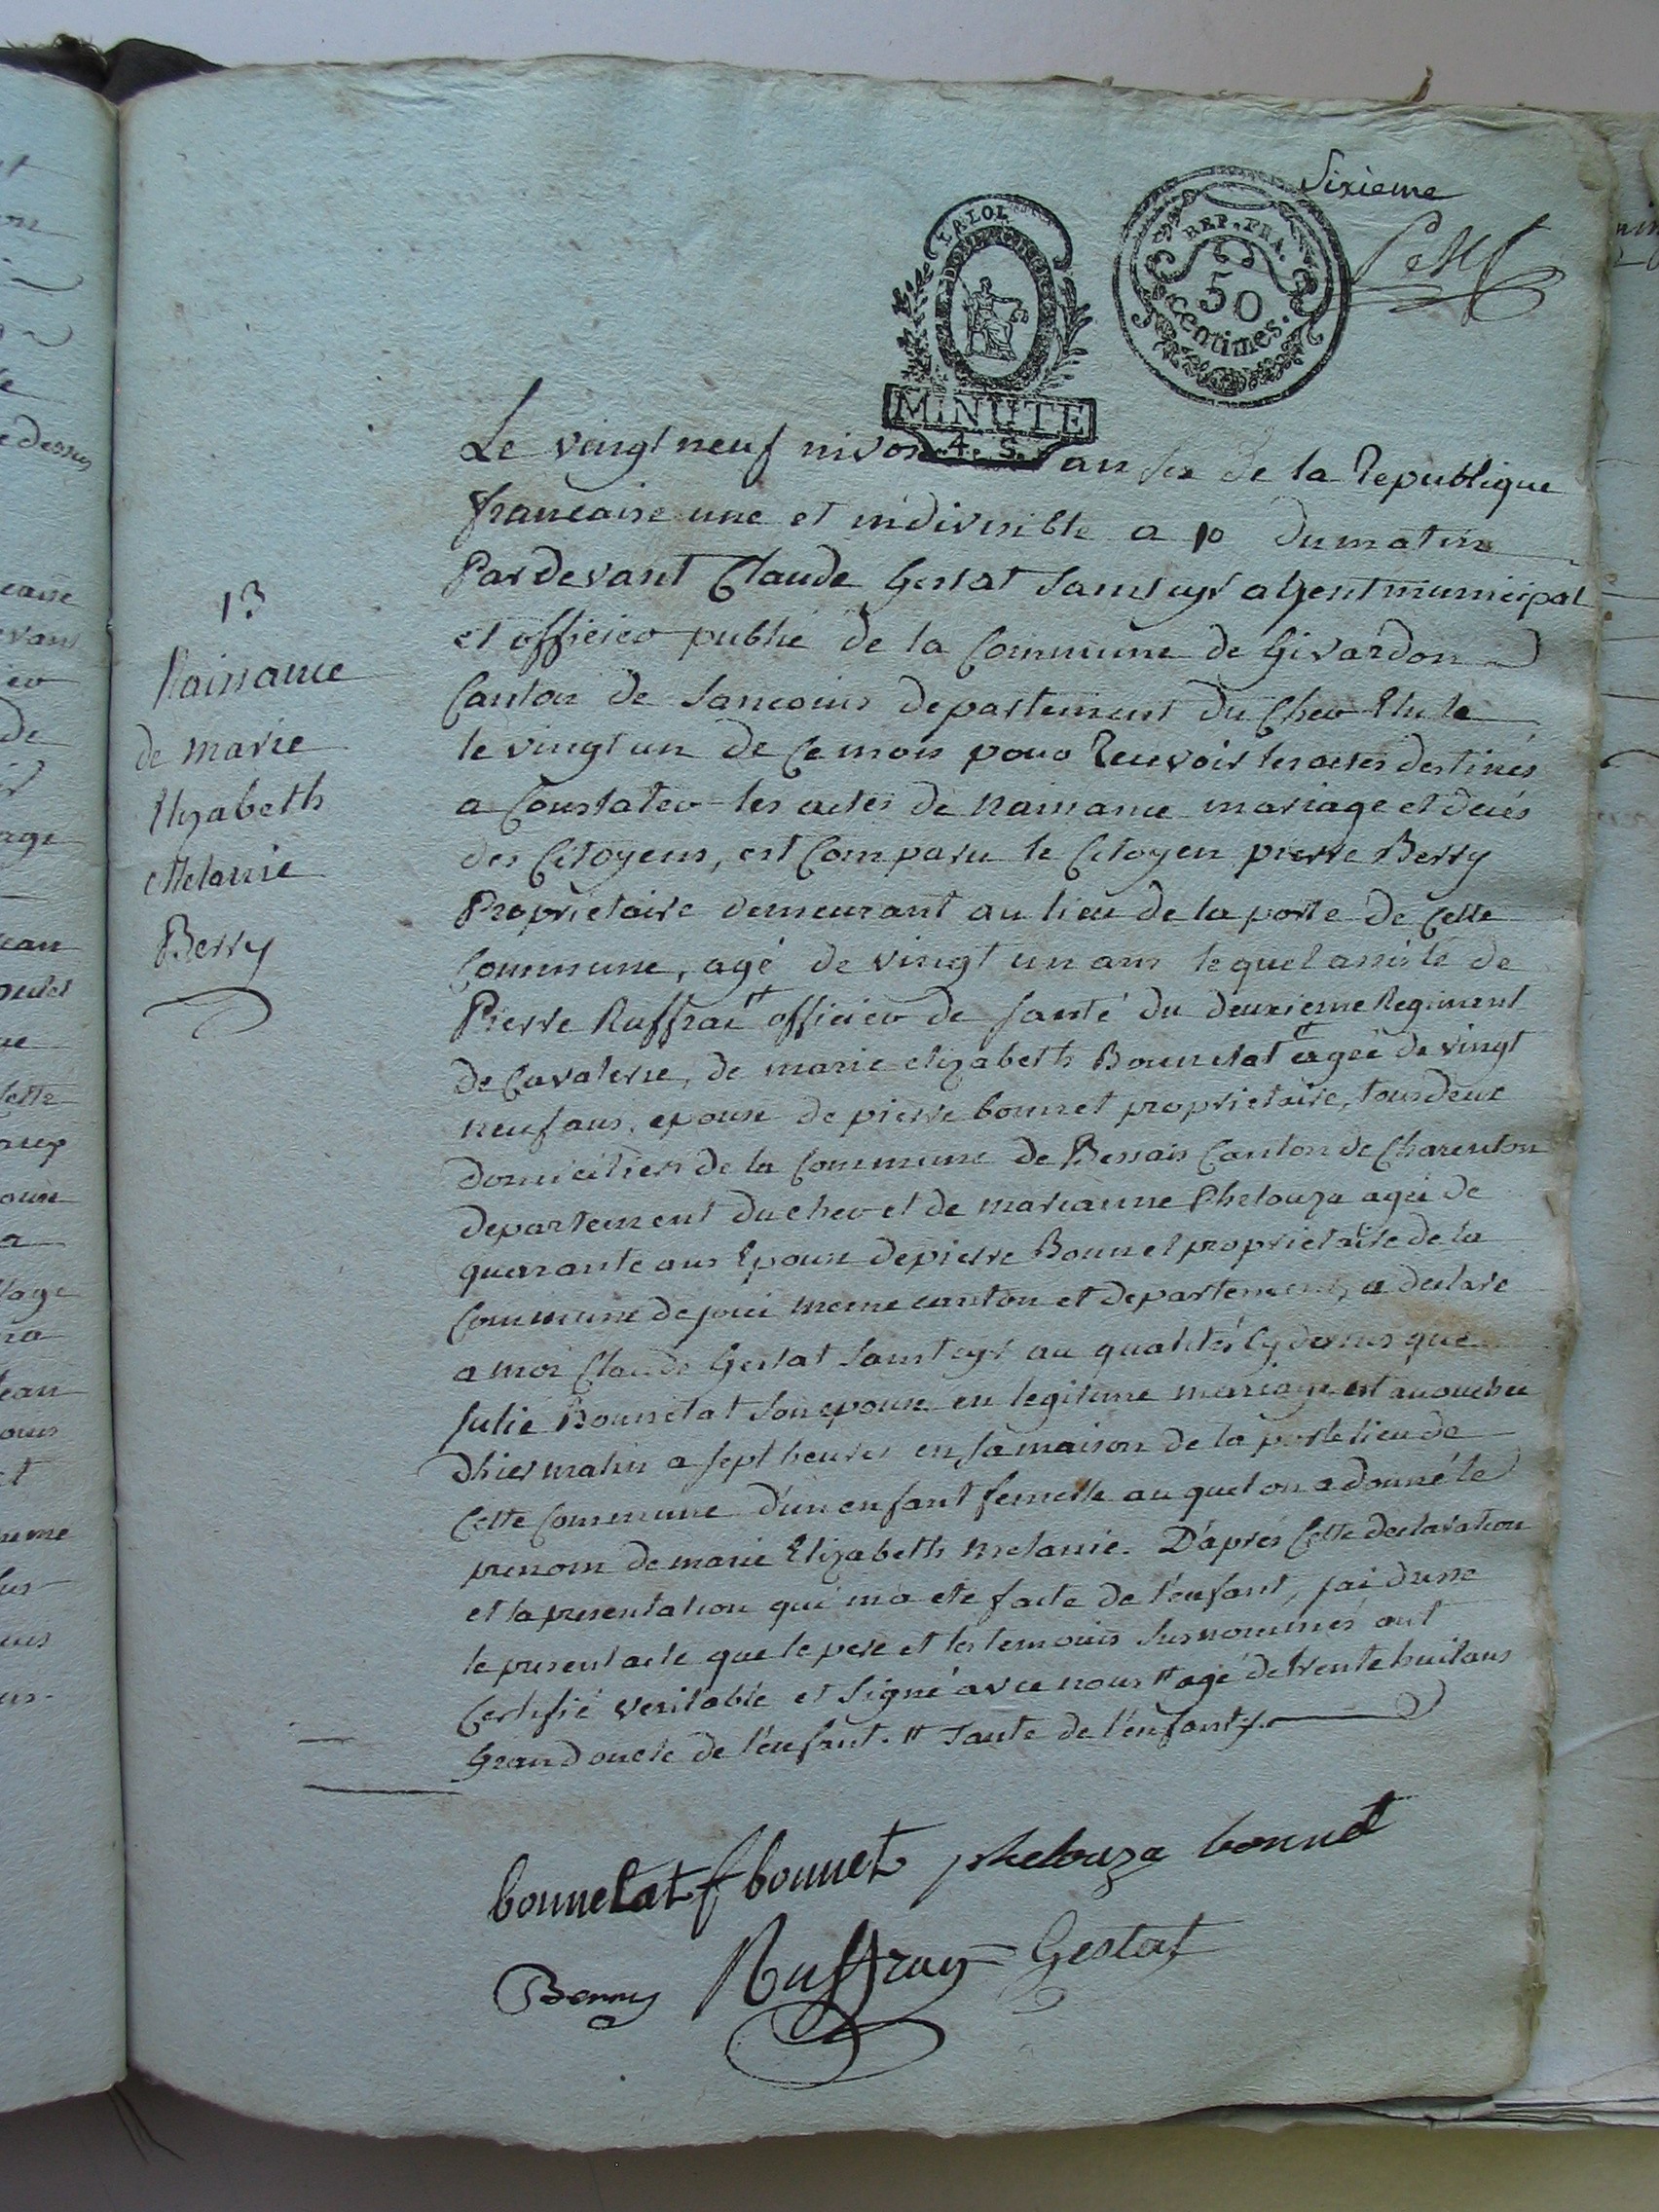 Sixieme
LA LOI
REP. FRA.
50
centimes.
MINUTE
4. S.
Le vingt neuf nivose an six de la Republique
francaise une et indivisible a 10 du matin
Pardevant Claude Gestat Saint cyr agent municipal
et officier public de la Commune de Givardon
Canton de Sancoins departement du Cher Elu le
le vingt un de Ce mois pour Recevoir les actes destinés
a Constater les actes de naissance mariage et decés
des Citoyens, est Comparu le Citoyen pierre Berry
Proprietaire demeurant au lieu de la porte de Cette
Commune, agé de vingt un ans lequel assisté de
Pierre Ruffrai # officier de santé du deuxieme Regiment
de Cavalerie, de marie elizabeth Bonnelat # agée de vingt
neuf ans. epouse de pierre bonnet proprietaire, tous deux
domiciliers de la Commune de Bessais Canton de Charenton
departement du cher et de marianne Phelouza agée de
quarante ans Epouse de pierre Bonnet proprietaire de la
Commune de joui meme canton et departement, a declare
a moi Claude Gestat Saint cyr au qualités Cy dessus que
Julie Bonnelat Son epouse en legitime mariage est accouchee
dhier matin a sept heures en sa maison de la porte lieu de
Cette Commune d'un enfant femelle au quel on a donné le
prenom de marie Elizabeth melanie. D'aprés Cette declaration
et la presentation qui m'a ete faite de l'enfant, jai dressé
le present acte que le pere et les temoins susnommés ont
Certifié veritable et Signé avec nous # agé de trente huit ans
Grand oncle de l'enfant. # Tante de l'enfant
13
Naissance
de marie
Elyzabeth
Melanie
Berry
bonnelat f bonnet phelouza bonnet
Berry Ruffray Gestat